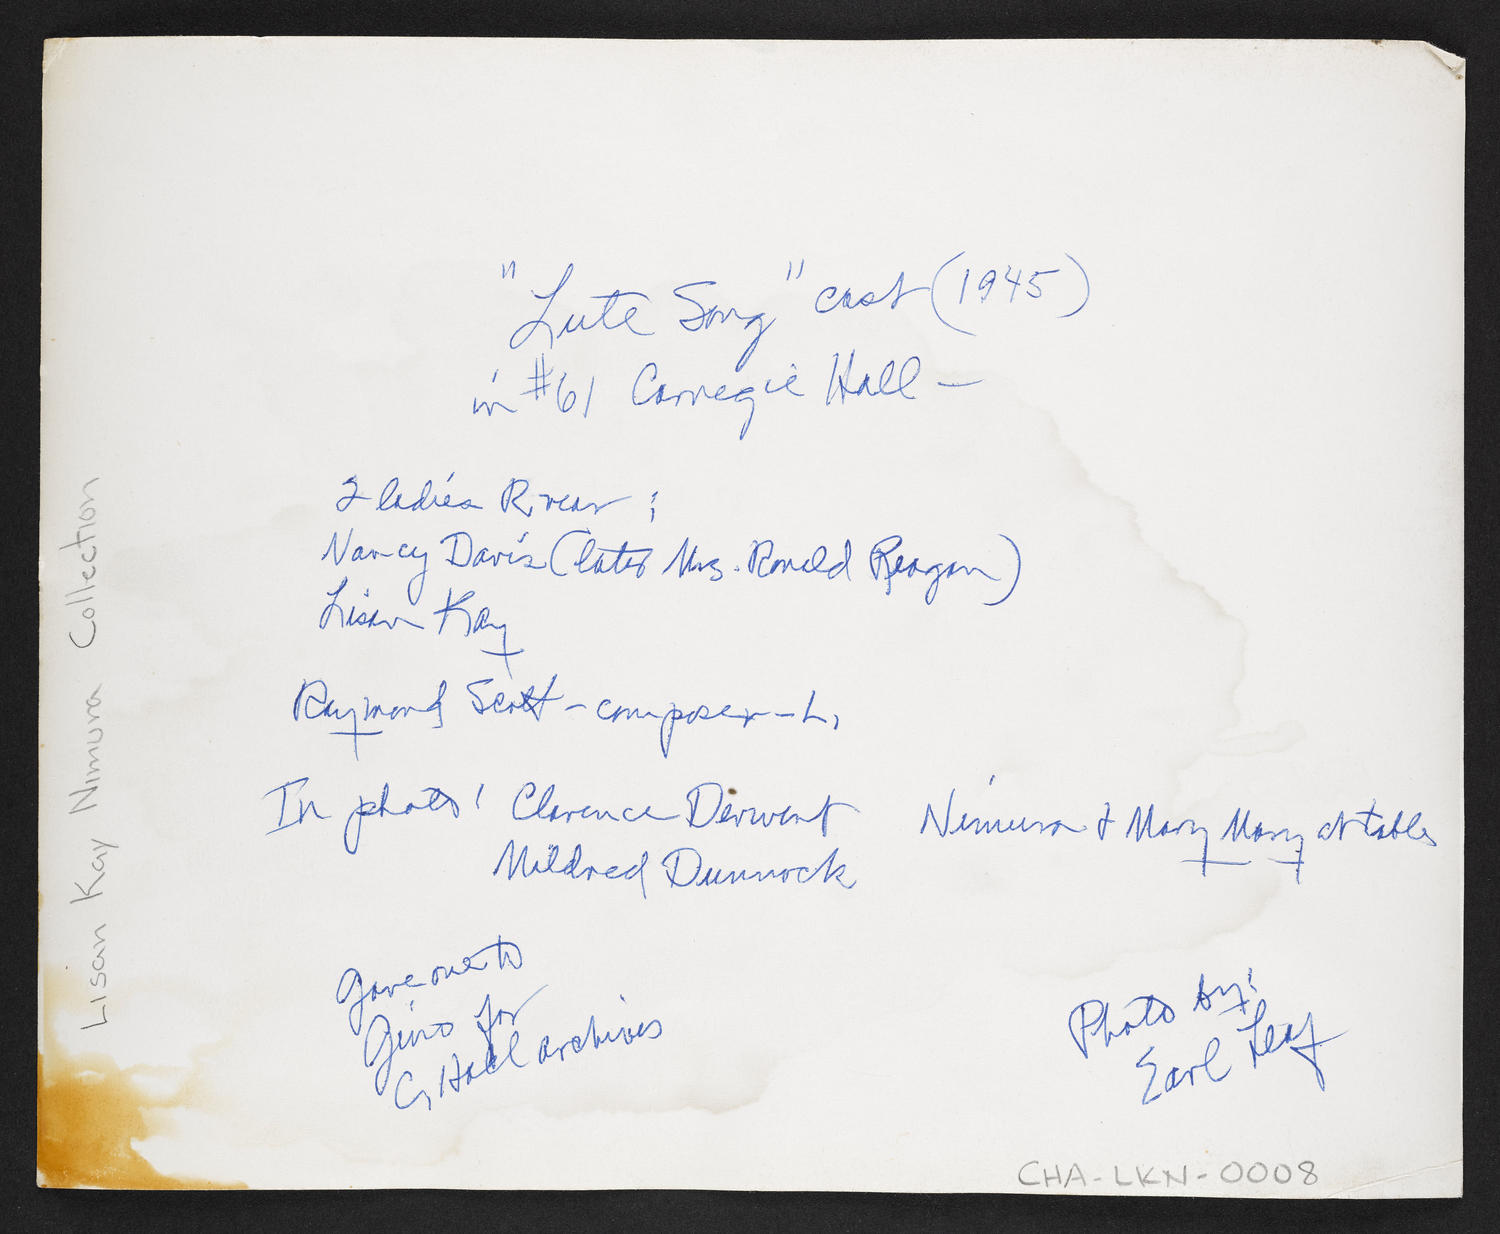 "Lute Song" cast (1945)
in #61 Carnegie Hall –
2 ladies R. rear :
Nancy Davis (later Mrs. Ronald Reagan)
Lisan Kay
Raymond Scott – composer – L.
In photo: Clarence Derwent
Mildred Dunnock
Nimura & Mary Mary at table
Gave one to
Gino for
C. Hall archives
Photo by:
Earl Leaf
Lisan Kay Nimura Collection
CHA-LKN-0008